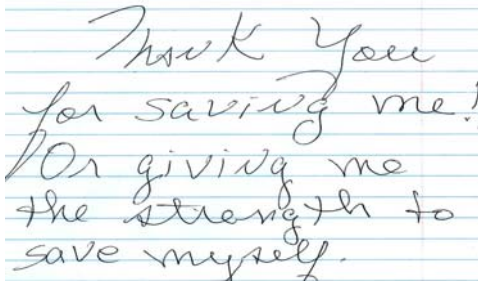 Thank You
for saving me!
Or giving me
the strength to
save myself.